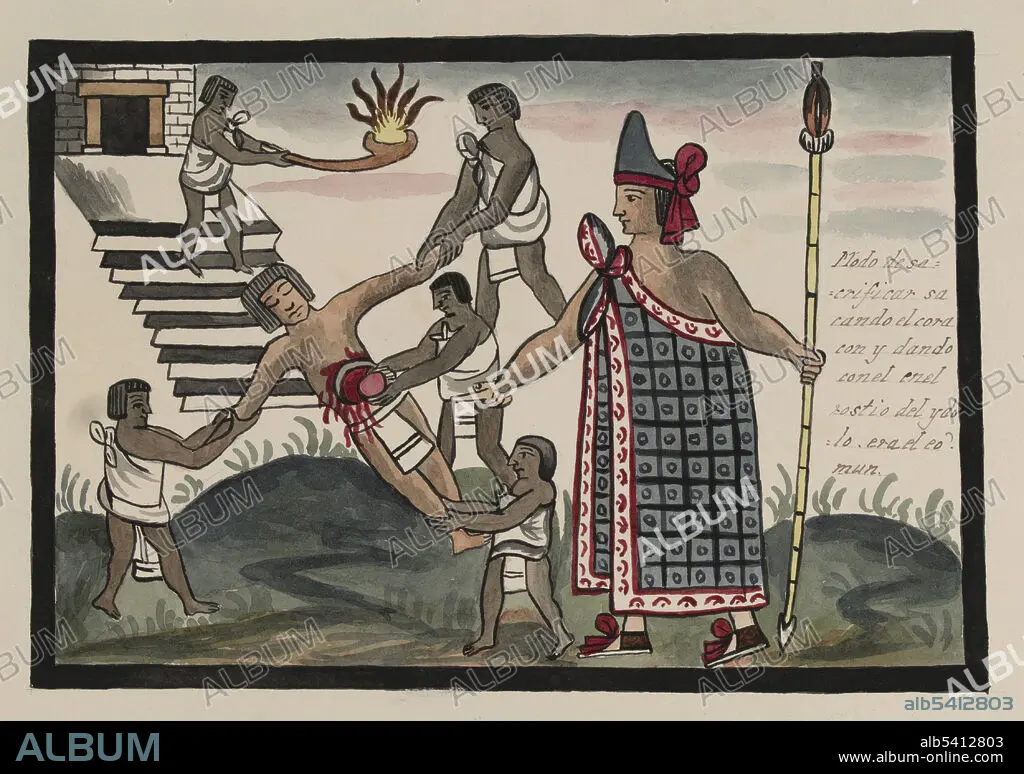 Modo de sa=
=crificar sa
cando el cora
con y dando
con el en el
rostio del ydo
=lo. era el co?
mun.
ALBUM
alb5412803
ALBUM
alb5412803
www.album-online.com